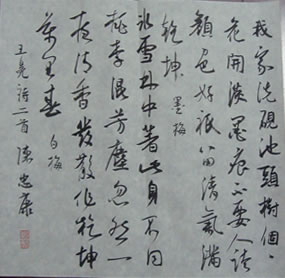 我家洗硯池頭樹個〻
花開淡墨痕不要人誇
顏色好祇留清氣滿
乾坤 墨梅
冰雪林中著此身不同
桃李混芳塵忽然一
夜清香發散作乾坤
萬里春 白梅
王冕詩二首 陳忠康